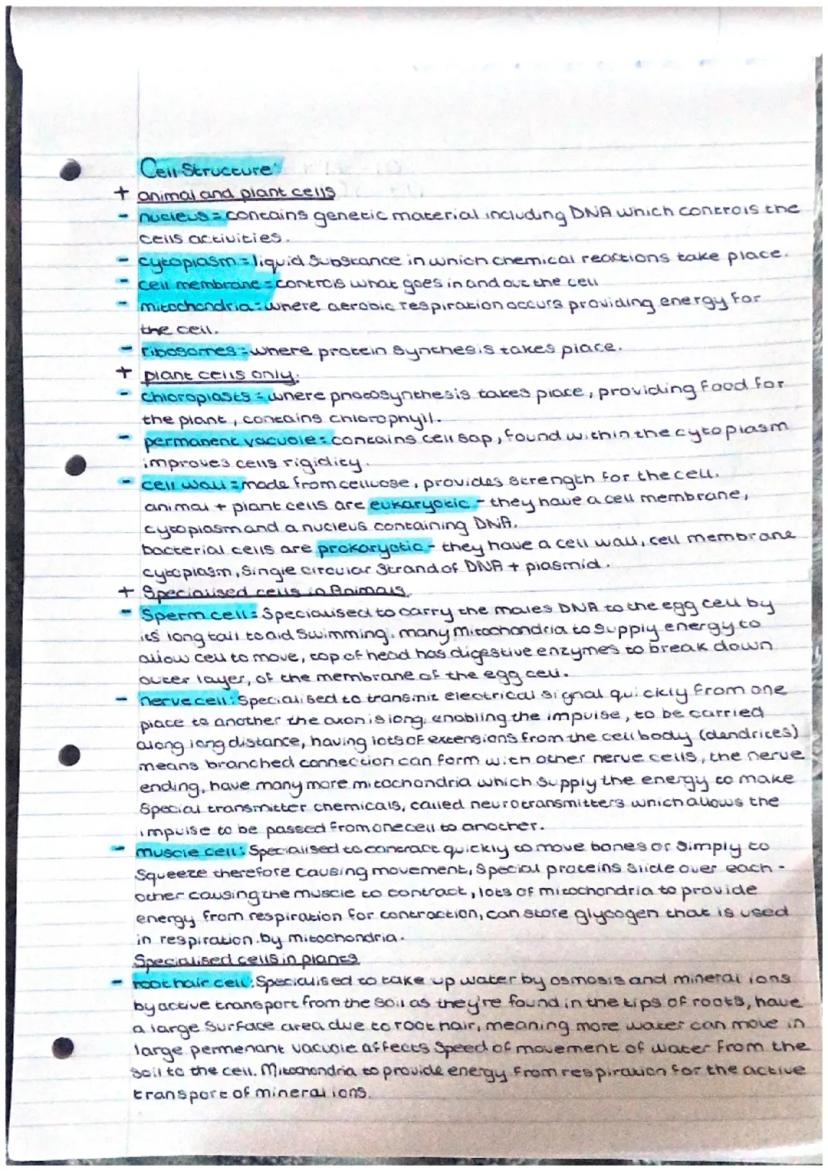 Cell Structure:
+ animal and plant cells
- nucleus = contains genetic material including DNA which controls the
cells activities.
- cytoplasm = liquid substance in which chemical reactions take place.
- cell membrane = controls what goes in and out the cell
- mitochondria = where aerobic respiration occurs providing energy for
the cell.
- ribosomes = where protein synthesis takes place.
+ plant cells only:
- chloroplasts = where photosynthesis takes place, providing food for
the plant, contains chlorophyll.
- permanent vacuole = contains cell sap, found within the cytoplasm
improves cells rigidity.
- cell wall = made from cellulose, provides strength for the cell.
animal + plant cells are eukaryotic - they have a cell membrane,
cytoplasm and a nucleus containing DNA.
bacterial cells are prokaryotic - they have a cell wall, cell membrane
cytoplasm, single circular strand of DNA + plasmid.
+ Specialised cells in Animals
- Sperm cell: Specialised to carry the males DNA to the egg cell by
its long tail to aid swimming, many mitochondria to supply energy to
allow cell to move, top of head has digestive enzymes to break down
outer layer, of the membrane of the egg cell.
- nerve cell: Specialised to transmit electrical signal quickly from one
place to another the axon is long, enabling the impulse, to be carried
along long distance, having lots of extensions from the cell body (dendrices)
means branched connection can form with other nerve cells, the nerve
ending, have many more mitochondria which supply the energy to make
special transmitter chemicals, called neurotransmitters which allows the
impulse to be passed from one cell to another.
- muscle cell: Specialised to contract quickly to move bones or simply to
squeeze therefore causing movement, special proteins slide over each-
other causing the muscle to contract, lots of mitochondria to provide
energy from respiration for contraction, can store glycogen that is used
in respiration by mitochondria.
Specialised cells in plants
- root hair cell: Specialised to take up water by osmosis and mineral ions
by active transport from the soil as they're found in the tips of roots, have
a large surface area due to root hair, meaning more water can move in
large permenant vacuole affects speed of movement of water from the
soil to the cell. Mitochondria to provide energy from respiration for the active
transport of mineral ions.